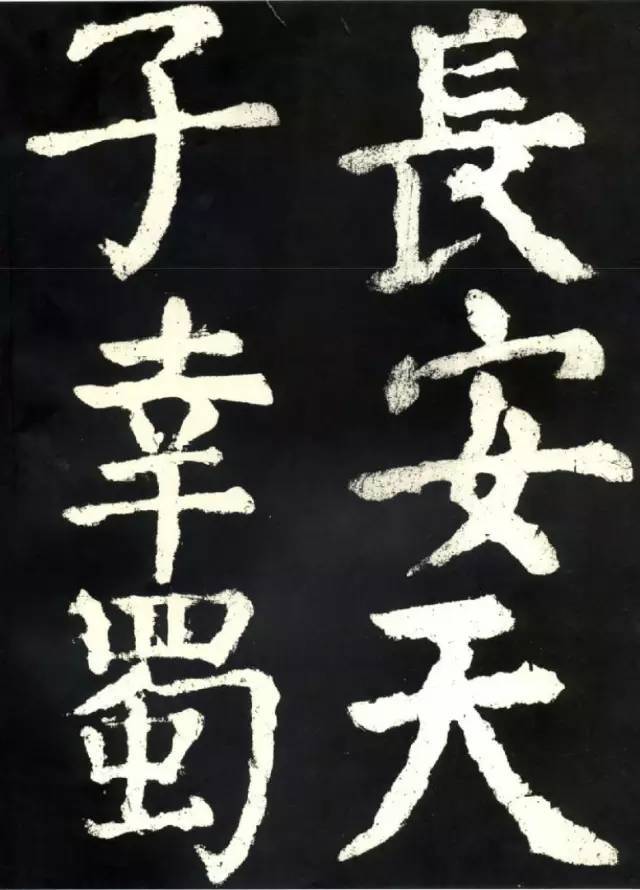 長安天
子幸蜀